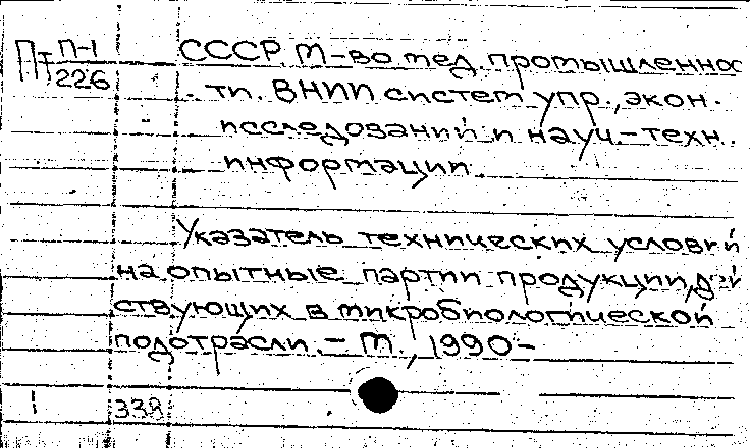 Пт П-1 СССР. М-во мед. промышленнос
226 ти. ВНИИ систем упр., экон.
исследований и науч.-техн.
информации.
Указатель технических условий
на опытные партии продукции, дей
ствующих в микробиологической
подотрасли. – М., 1990-
1 338